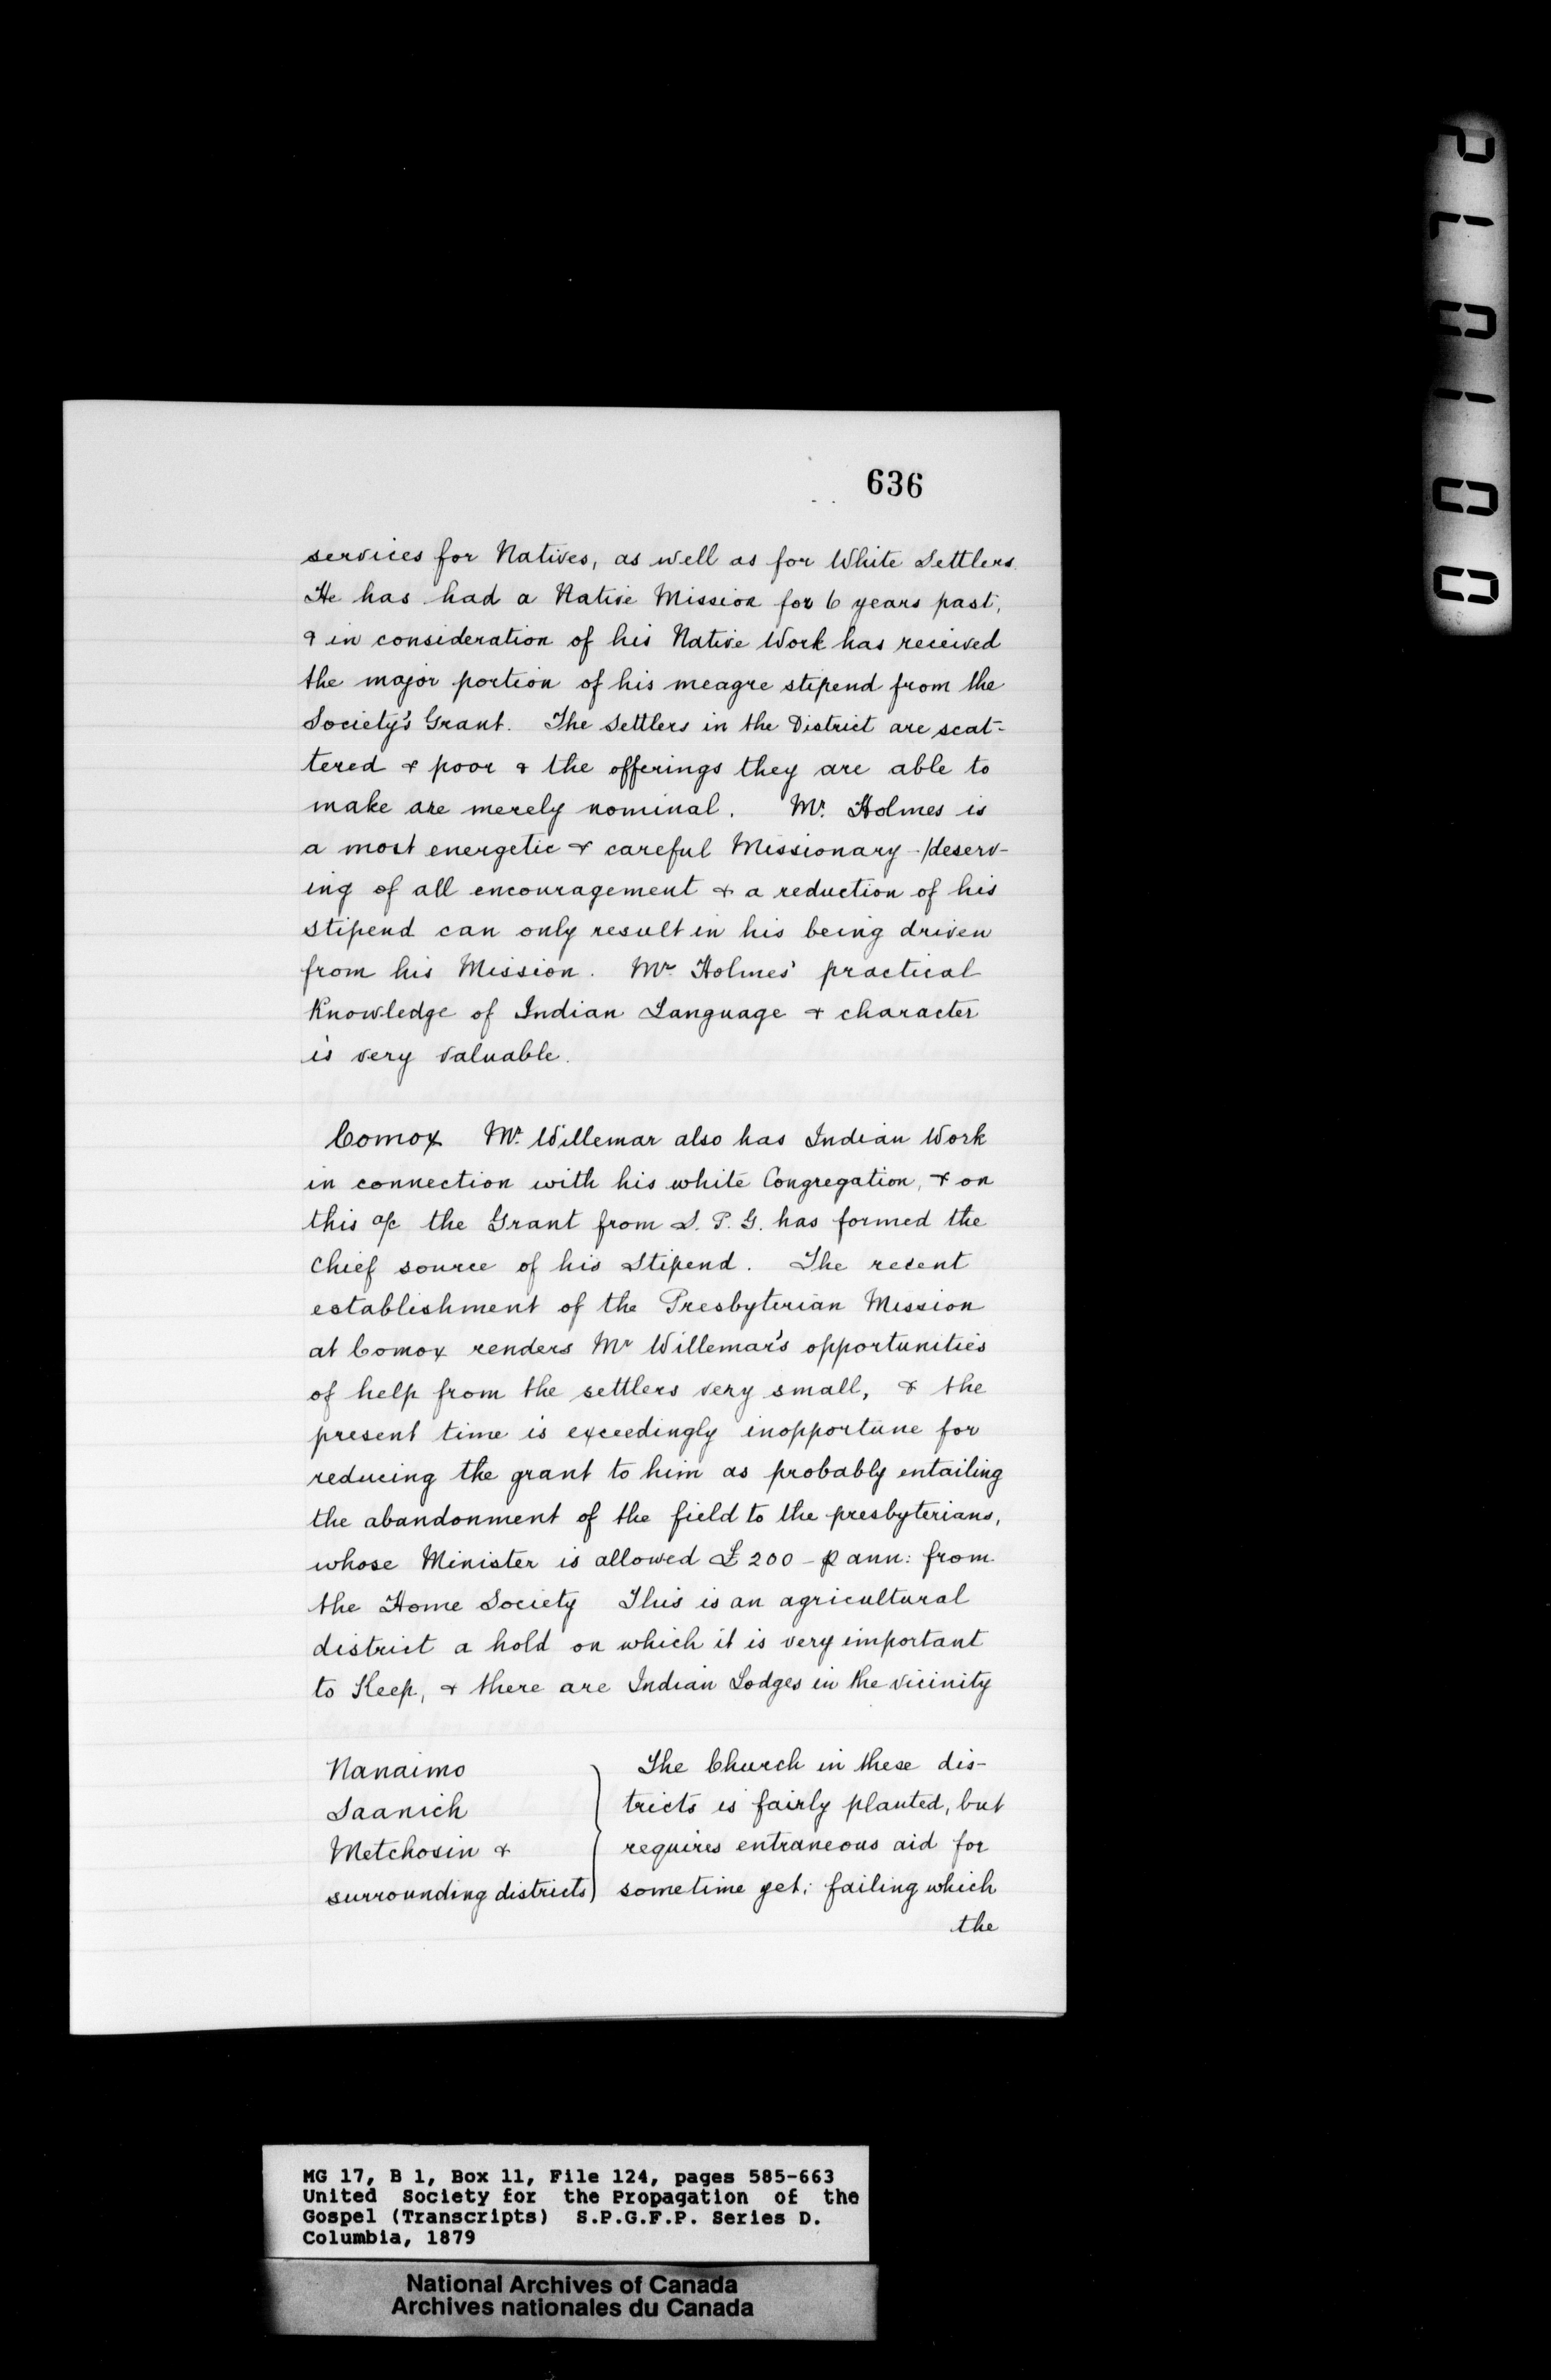 636
services for Natives, as well as for White Settlers.
He has had a Native Mission for 6 years past,
& in consideration of his Native Work has received
the major portion of his meagre stipend from the
Society's Grant. The Settlers in the District are scat-
tered & poor & the offerings they are able to
make are merely nominal. Mr. Holmes is
a most energetic & careful Missionary - deserv-
ing of all encouragement & a reduction of his
stipend can only result in his being driven
from his Mission. Mr Holmes' practical
Knowledge of Indian Language & character
is very valuable.
Comox Mr. Willemar also has Indian Work
in connection with his white Congregation, & on
this a/c the Grant from S. P. G. has formed the
Chief source of his Stipend. The recent
establishment of the Presbyterian Mission
at Comox renders Mr Willemar's opportunities
of help from the settlers very small, & the
present time is exceedingly inopportune for
reducing the grant to him as probably entailing
the abandonment of the field to the presbyterians,
whose Minister is allowed £200 - p ann: from
the Home Society This is an agricultural
district a hold on which it is very important
to Keep, & there are Indian Lodges in the vicinity
Nanaimo
Saanich
Metchosin &
surrounding districts)
The Church in these dis-
tricts is fairly planted, but
requires entraneous aid for
sometime yet; failing which
the
MG 17, B 1, Box 11, File 124, pages 585-663
United Society for the Propagation of the
Gospel (Transcripts) S.P.G.F.P. Series D.
Columbia, 1879
National Archives of Canada
Archives nationales du Canada